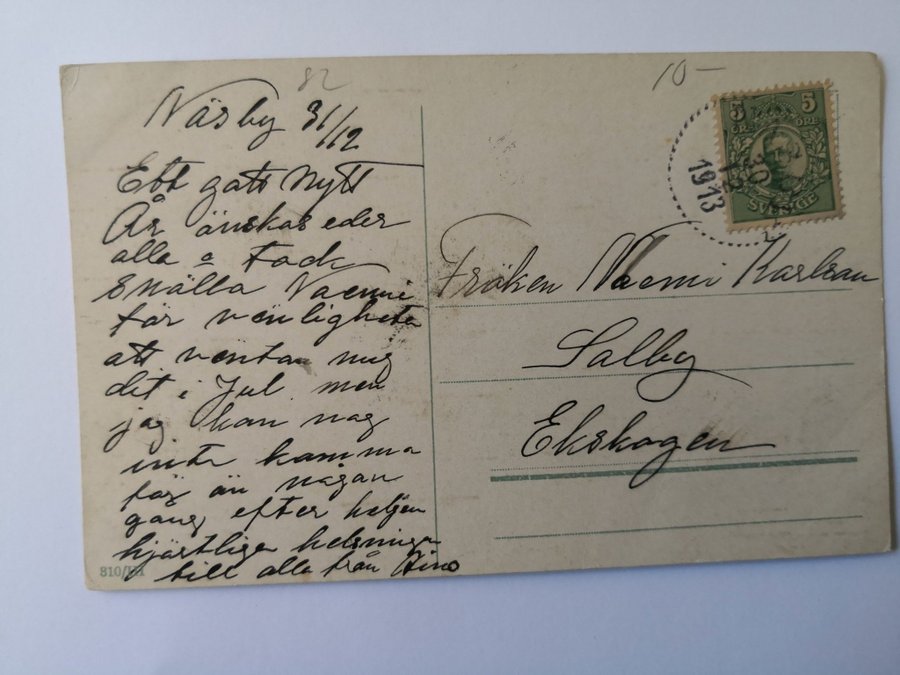 82
10 -
Näsby 31/12
Ett gott Nytt
År önskas eder
alla o Tack
Snälla Naemi
för vänligheten
att vänta mig
dit i Jul men
jag kan nog
inte komma
för än någon
gång efter helgen
hjärtliga helsningar
till alla från Aino
5 5
ÖRE ÖRE
SVERIGE
1913
12
Fröken Naemi Karlsson
Salby
Ekskogen
810/III